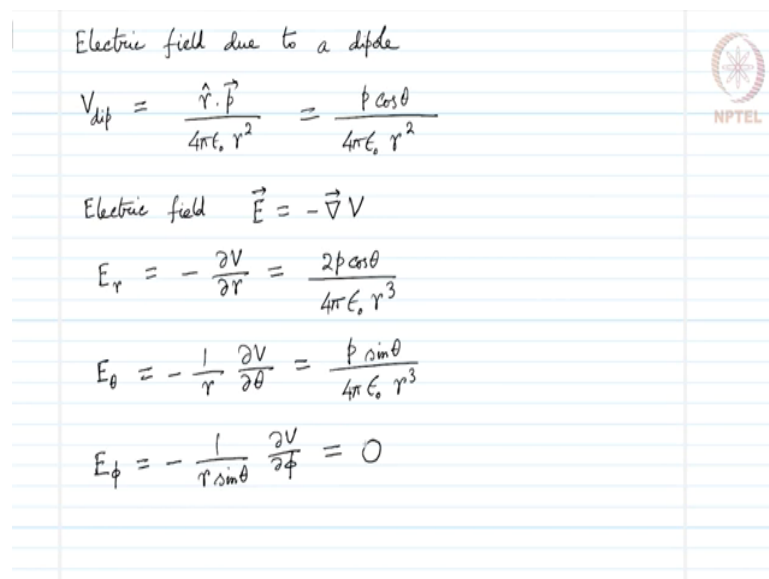 Electric field due to a dipole
V_dip = r̂ · p⃗ / 4πϵ₀ r² = p cosθ / 4πϵ₀ r²
NPTEL
Electric field E⃗ = − ∇⃗ V
E_r = − ∂V/∂r = 2p cosθ / 4πϵ₀ r³
E_θ = − 1/r ∂V/∂θ = p sinθ / 4πϵ₀ r³
E_ϕ = − 1/r sinθ ∂V/∂ϕ = 0